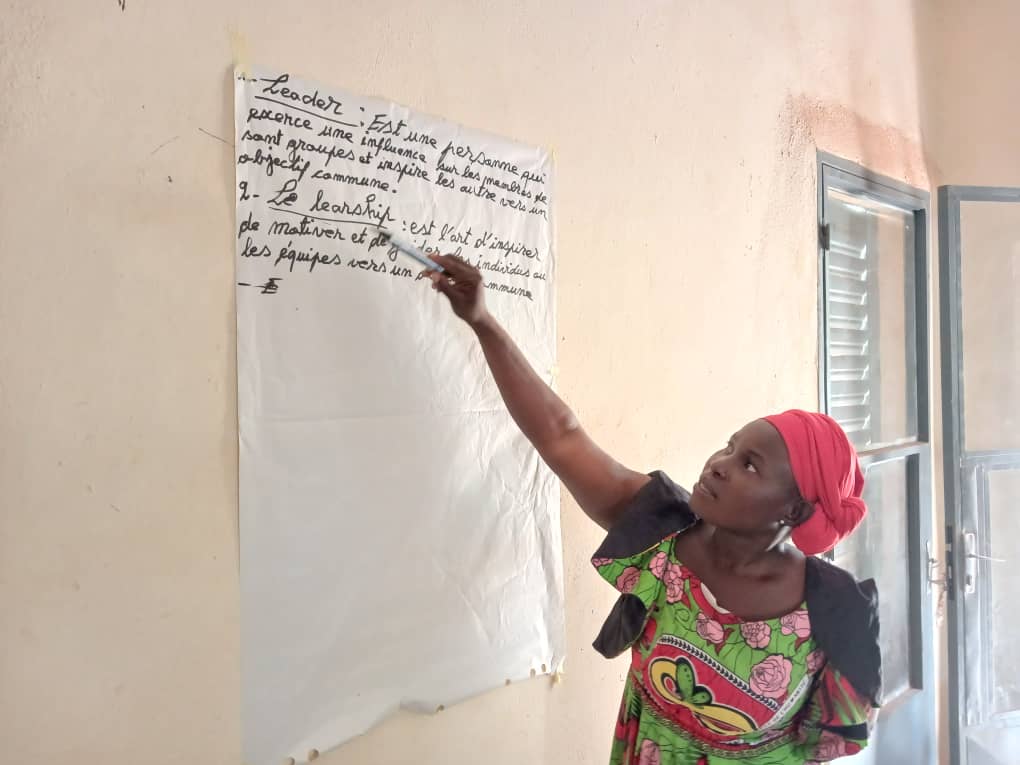 1- Leader : Est une personne qui
exerce une influence sur les membres de
sont groupes et inspire les autre vers un
objectif commune.
2- Le learship : est l'art d'inspirer
de motiver et de guider les individus ou
les équipes vers un commune